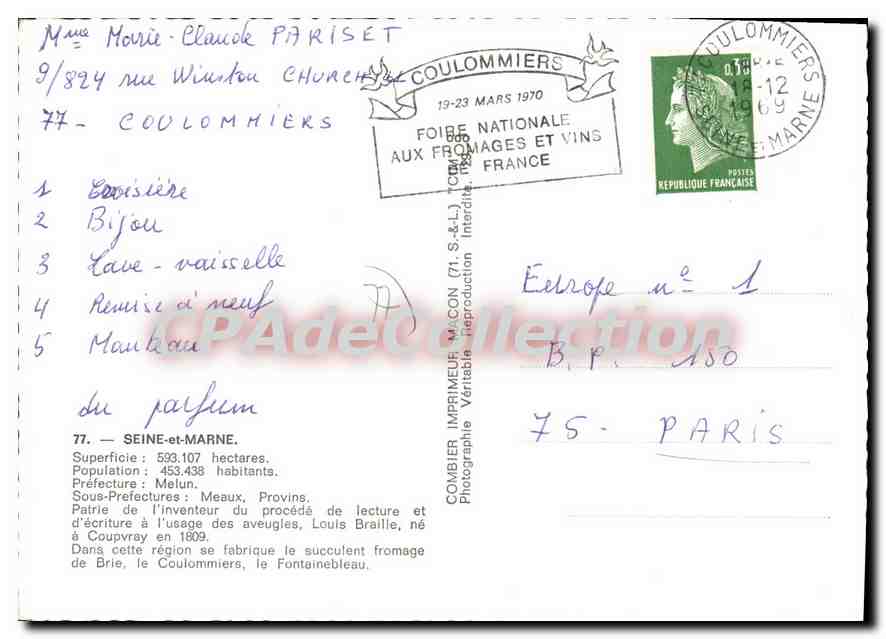 Mme Marie-Claude PARISET
9/824 rue Winston CHURCHILL
77 - COULOMMIERS
1 Croisière
2 Bijou
3 Lave-vaisselle
4 Remise à neuf
5 Manteau
du parfum
77
77. — SEINE-et-MARNE.
Superficie : 593.107 hectares.
Population : 453.438 habitants.
Préfecture : Melun.
Sous-Prefectures : Meaux, Provins.
Patrie de l'inventeur du procédé de lecture et
d'écriture à l'usage des aveugles, Louis Braille, né
à Coupvray en 1809.
Dans cette région se fabrique le succulent fromage
de Brie, le Coulommiers, le Fontainebleau.
COULOMMIERS
19-23 MARS 1970
FOIRE NATIONALE
AUX FROMAGES ET VINS
FRANCE
COULOMMIERS
18-12
1969
SEINE ET MARNE
0,30
POSTES
REPUBLIQUE FRANÇAISE
COMBIER IMPRIMEUR MACON (71. S.-&-L.) "CIM"
Photographie Véritable Reproduction Interdite.
Europe n° 1
B.P. 150
75 - PARIS
CPAdeCollection